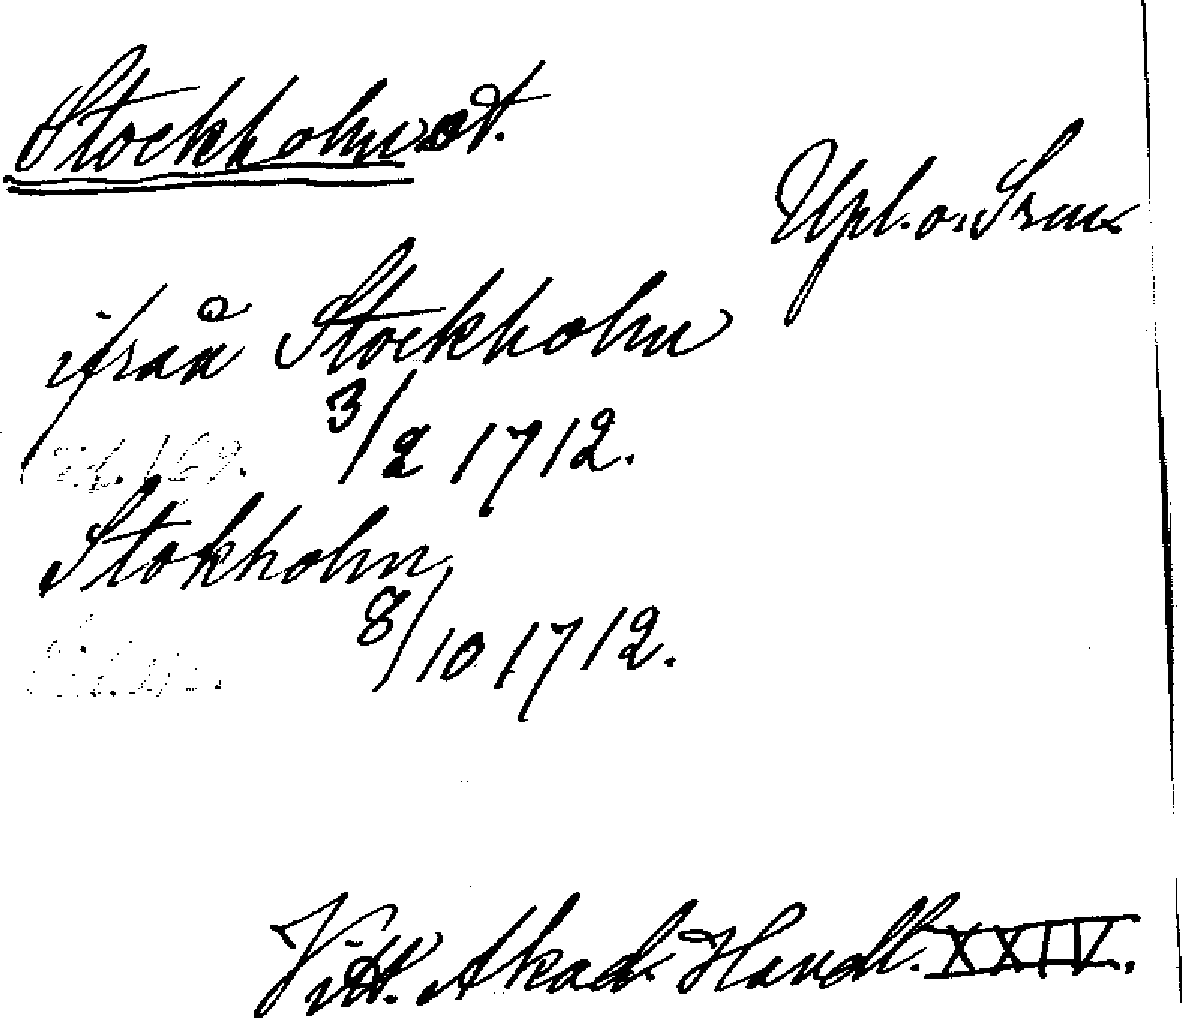 Stockholm st.
Upl. o. Srm
ifrån Stockholm
3/2 1712.
Stokholm
8/10 1712.
Vitt. Akad. Handl. XXIV.